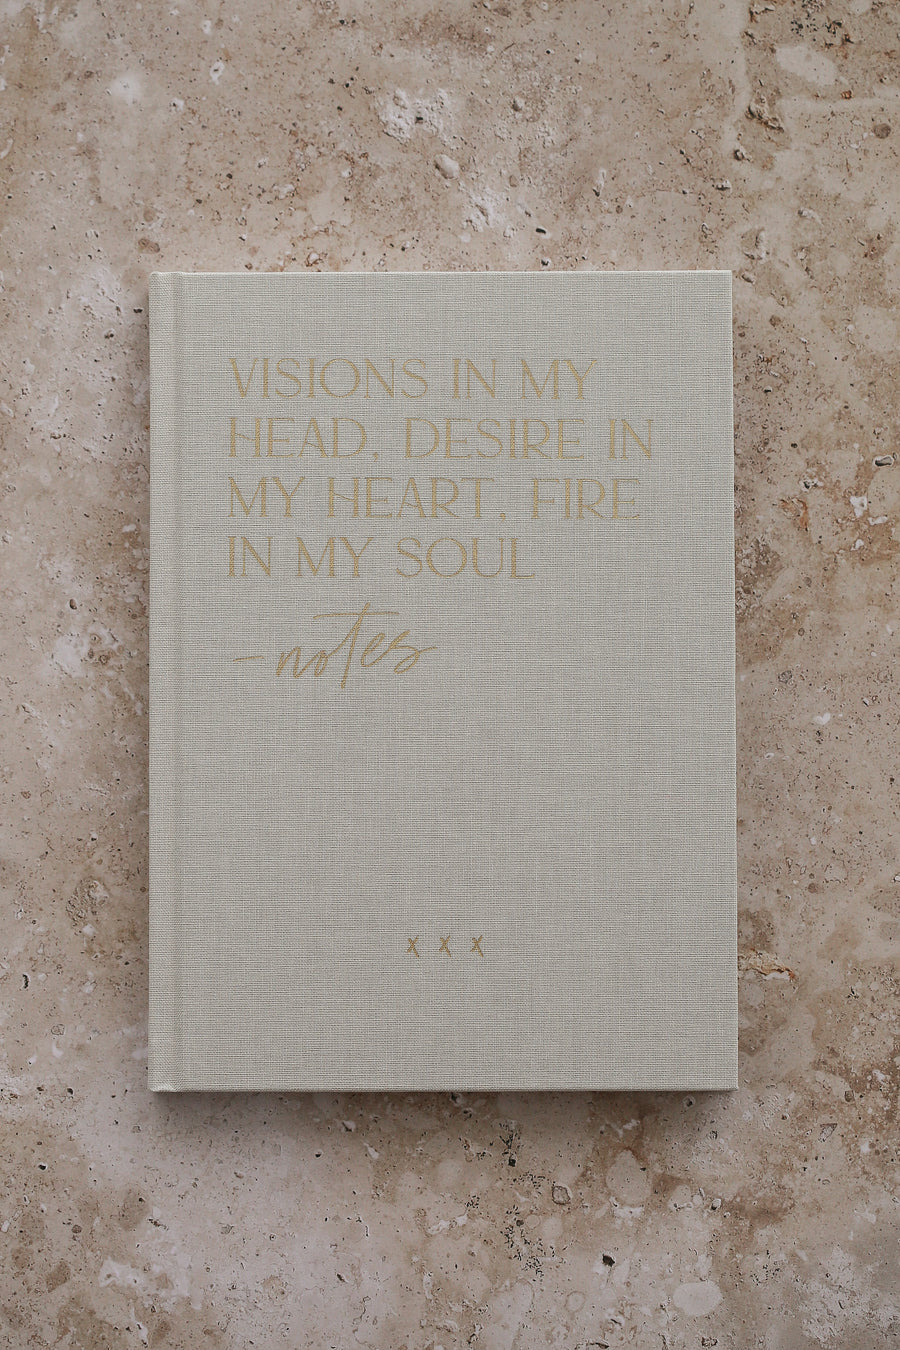 VISIONS IN MY
HEAD, DESIRE IN
MY HEART, FIRE
IN MY SOUL
-notes
X X X